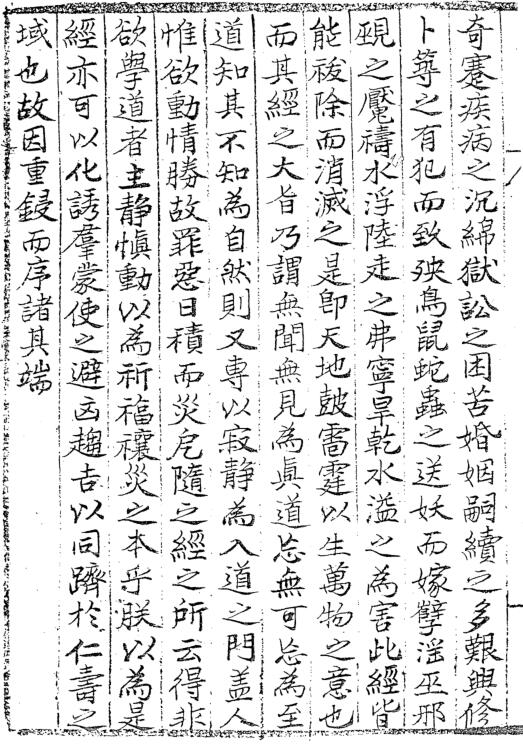 奇蹇疾病之沉綿獄訟之困苦婚姻嗣續之多艱興修
卜築之有犯而致殃鳥鼠蛇蟲之送妖而嫁孽淫巫邪
覡之魘禱水浮陸走之弗寧旱乾水溢之為害此經皆
能祓除而消滅之是卽天地鼓雷霆以生萬物之意也
而其經之大旨乃謂無聞無見為眞道忘無可忘為至
道知其不知為自然則又專以寂静為入道之門盖人
惟欲動情勝故罪惡日積而災危隨之經之所云得非
欲學道者主静愼動以為祈福禳災之本乎朕以為是
經亦可以化誘羣蒙使之避凶趨吉以同躋於仁壽之
域也故因重鋟而序諸其端